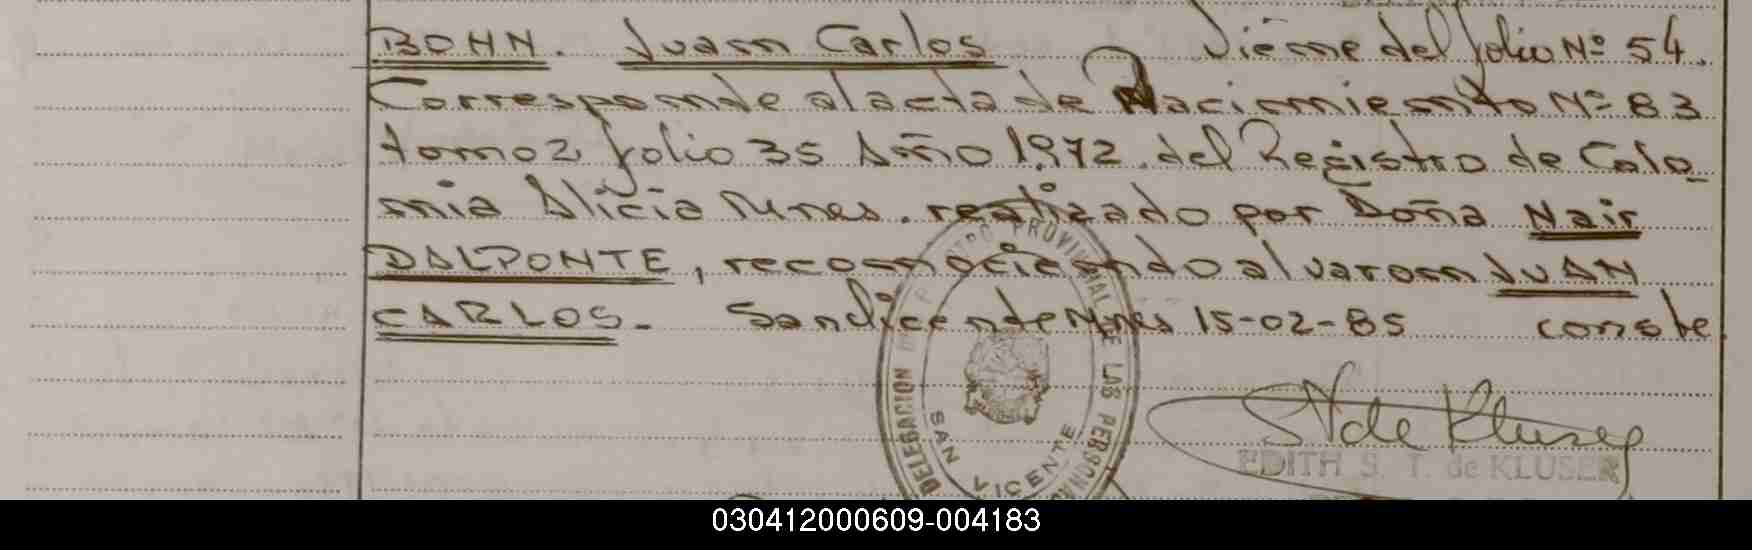 BOHN. Juan Carlos Viene del folio Nº 54.
Corresponde al acta de Nacimiento Nº 83
tomo 2 folio 35 Año 1.972. del Registro de Colo-
nia Alicia Mnes. realizado por Doña Nair
DALPONTE, reconociendo al varon JUAN
CARLOS. San Vicente Mnes 15-02-85 conste
DELEGACION REGISTRO PROVINCIAL DE LAS PERSONAS
SAN VICENTE
S T de Kluser
EDITH S. T. de KLUSER
030412000609-004183